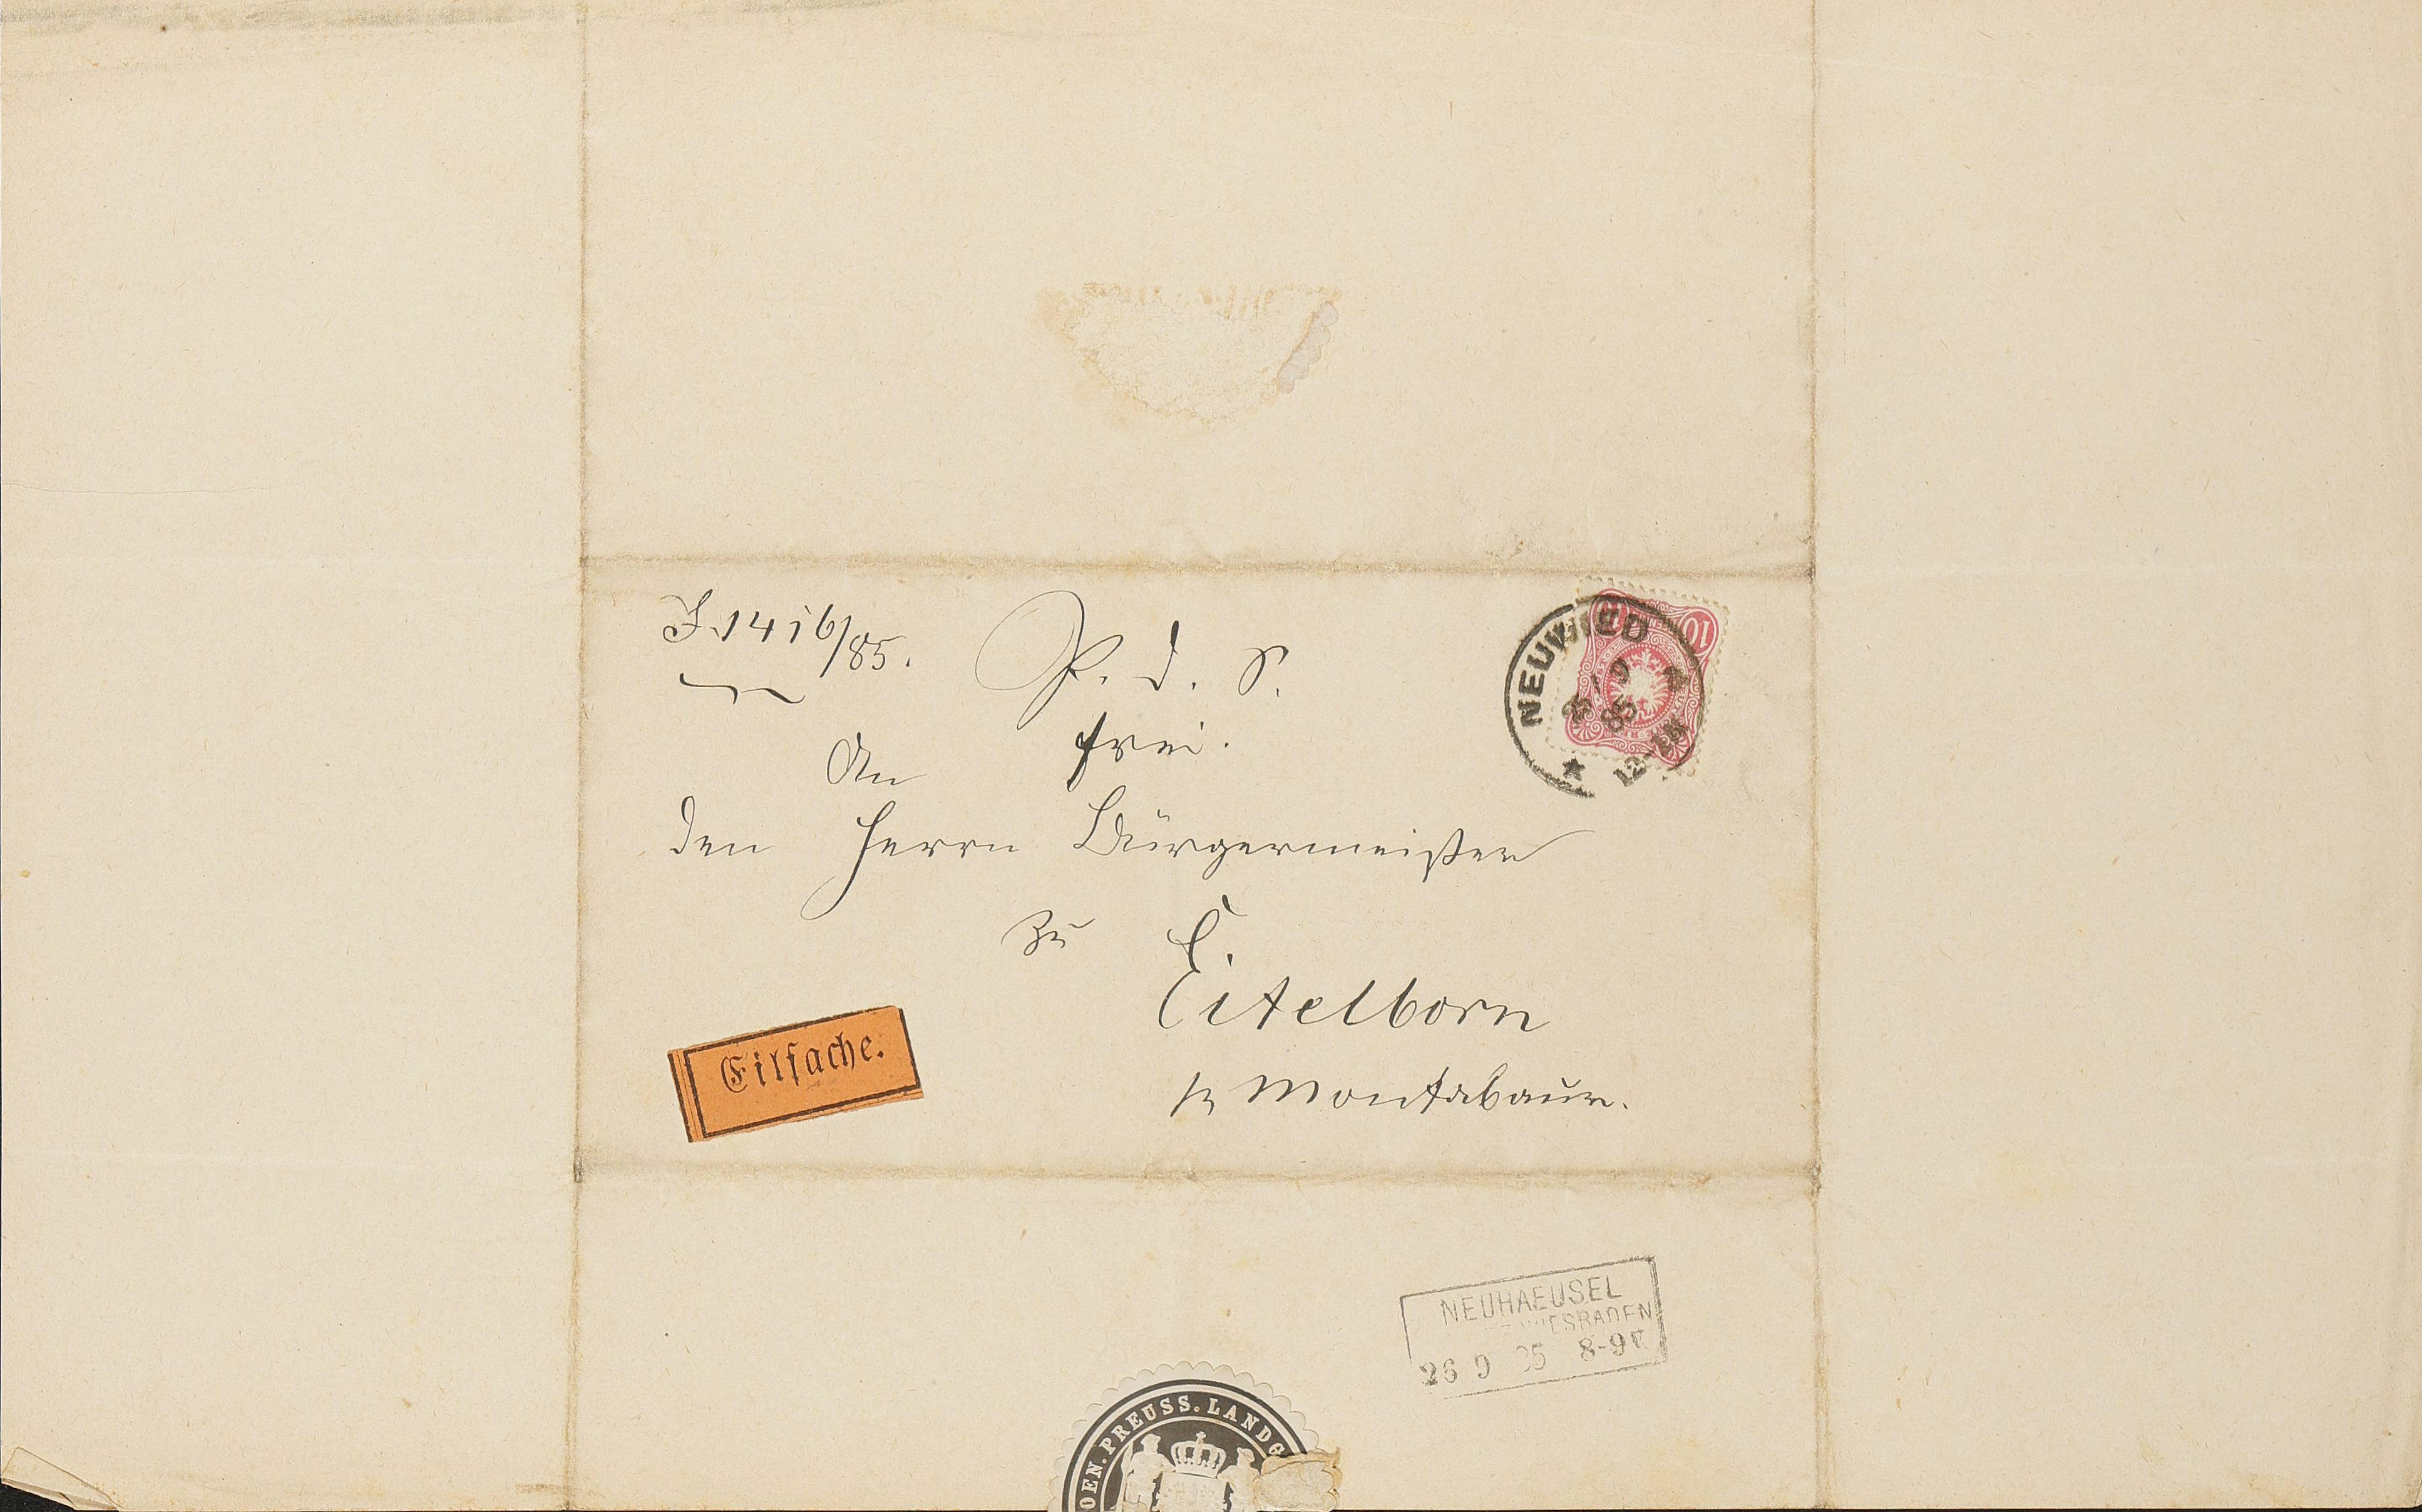 J. 1416/85.
P. d. S.
frei.
An
den Herrn Bürgermeister
zu
E.
Eitelborn
Montabaur.
Eilsache.
NEUWIED
9
85
12-
10
NEUHAEUSEL
WIESBADEN
26 9 85 8-9V
KOEN. PREUSS. LANDG